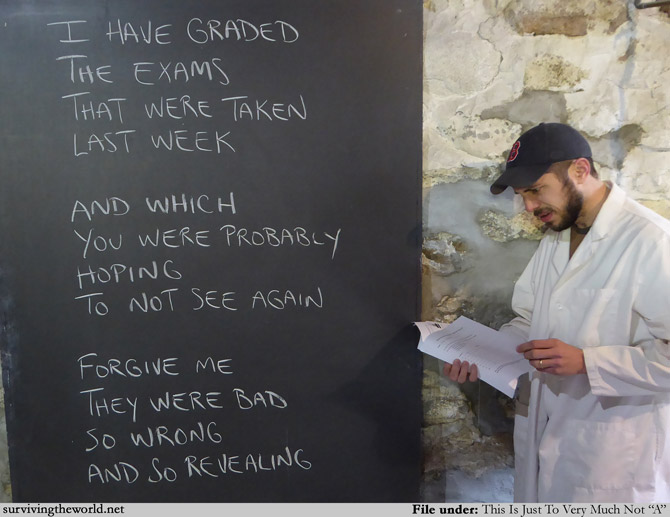 I HAVE GRADED
THE EXAMS
THAT WERE TAKEN
LAST WEEK
AND WHICH
YOU WERE PROBABLY
HOPING
TO NOT SEE AGAIN
FORGIVE ME
THEY WERE BAD
SO WRONG
AND SO REVEALING
B
survivingtheworld.net
File under: This Is Just To Very Much Not “A”